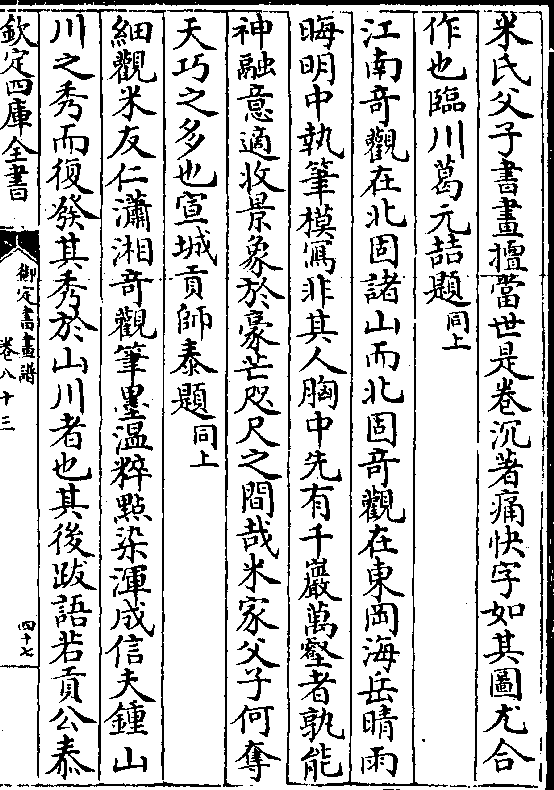 米氏父子書畫擅當世是卷沉著痛快字如其圖尤合
作也臨川葛元喆題同上
江南奇觀在北固諸山而北固奇觀在東岡海岳晴雨
晦明中執筆模寫非其人胸中先有千巖萬壑者孰能
神融意適收景象於豪芒咫尺之間哉米家父子何奪
天巧之多也宣城貢師泰題同上
細觀米友仁瀟湘奇觀筆墨溫粹點染渾成信夫鍾山
川之秀而復發其秀於山川者也其後跋語若貢公泰
欽定四庫全書
御定書畫譜
卷八十三
四十七